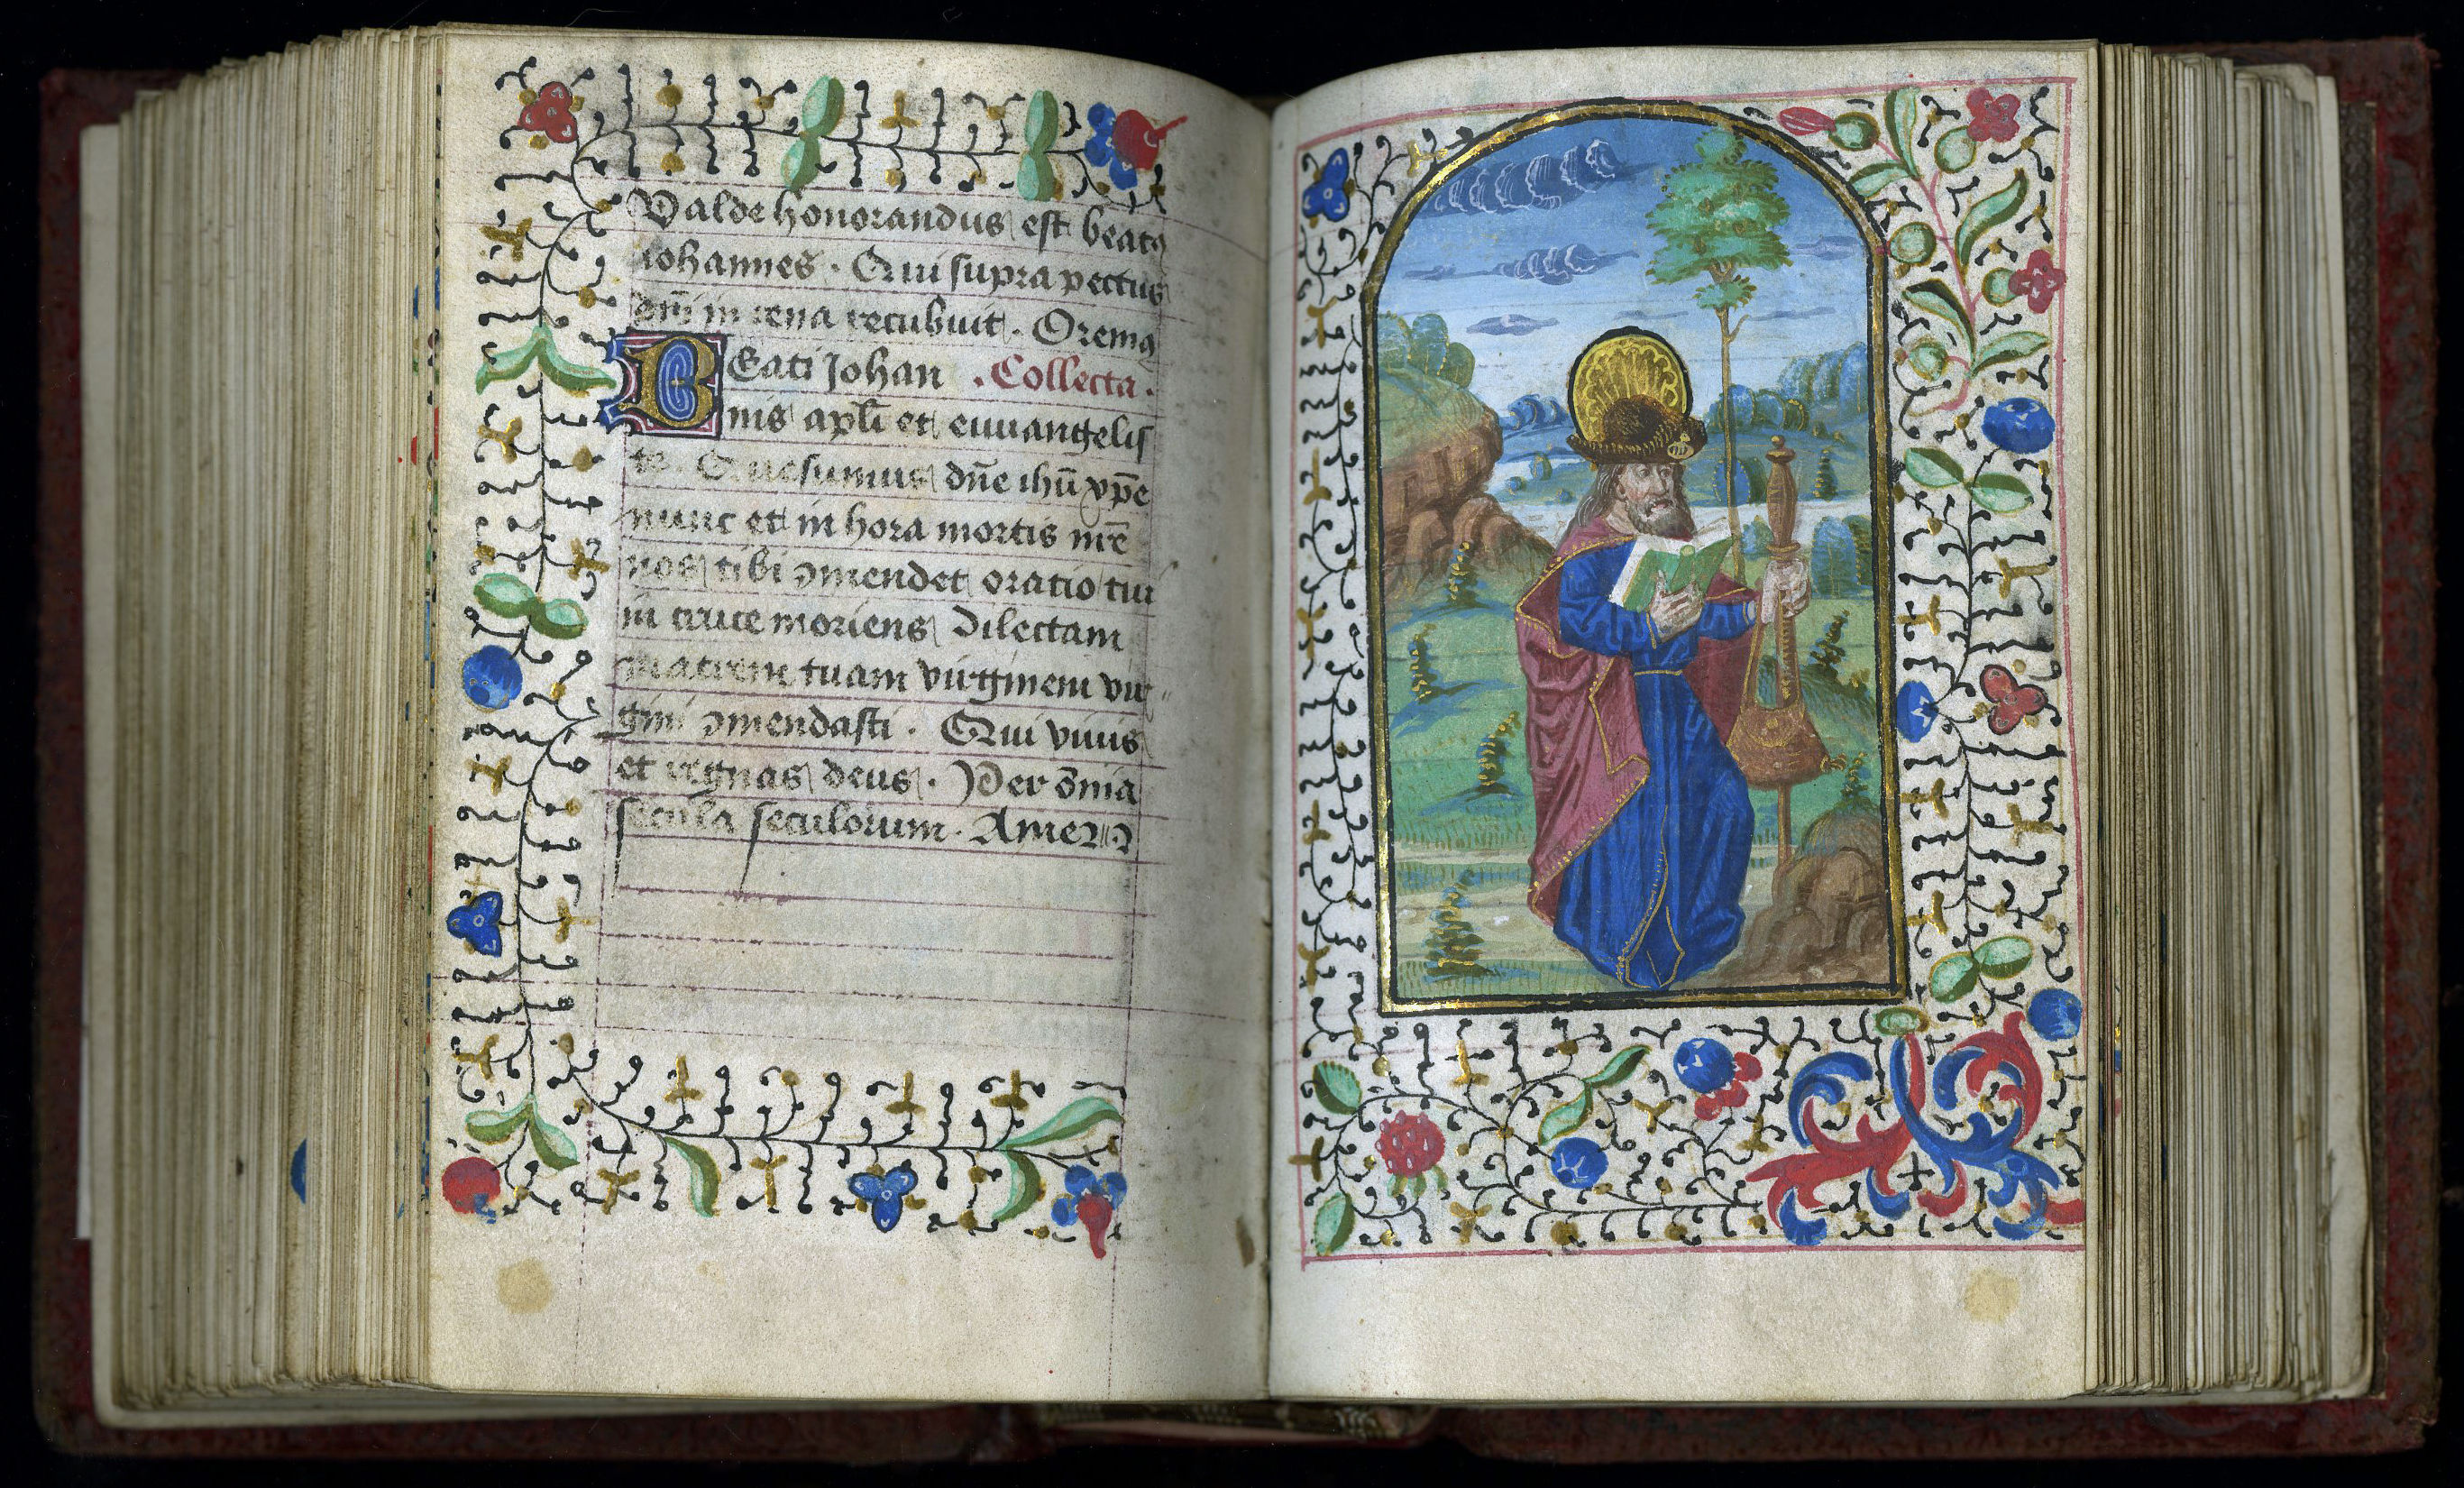 Valde honorandus est beatꝰ
iohannes. Qui supra pectus
dn̄i in cena recubuit. Oremꝰ
BEati Johan .Collecta.
nis apl̄i et euuangelis
te. Quesumus dn̄e ihū xp̄e
nunc et in hora mortis nr̄e
nos tibi ꝯmendet oratio tui
in cruce moriens dilectam
matrem tuam virginem vir
gini ꝯmendasti. Qui viuis
et regnas deus. Per om̄ia
secula seculorum. Amen